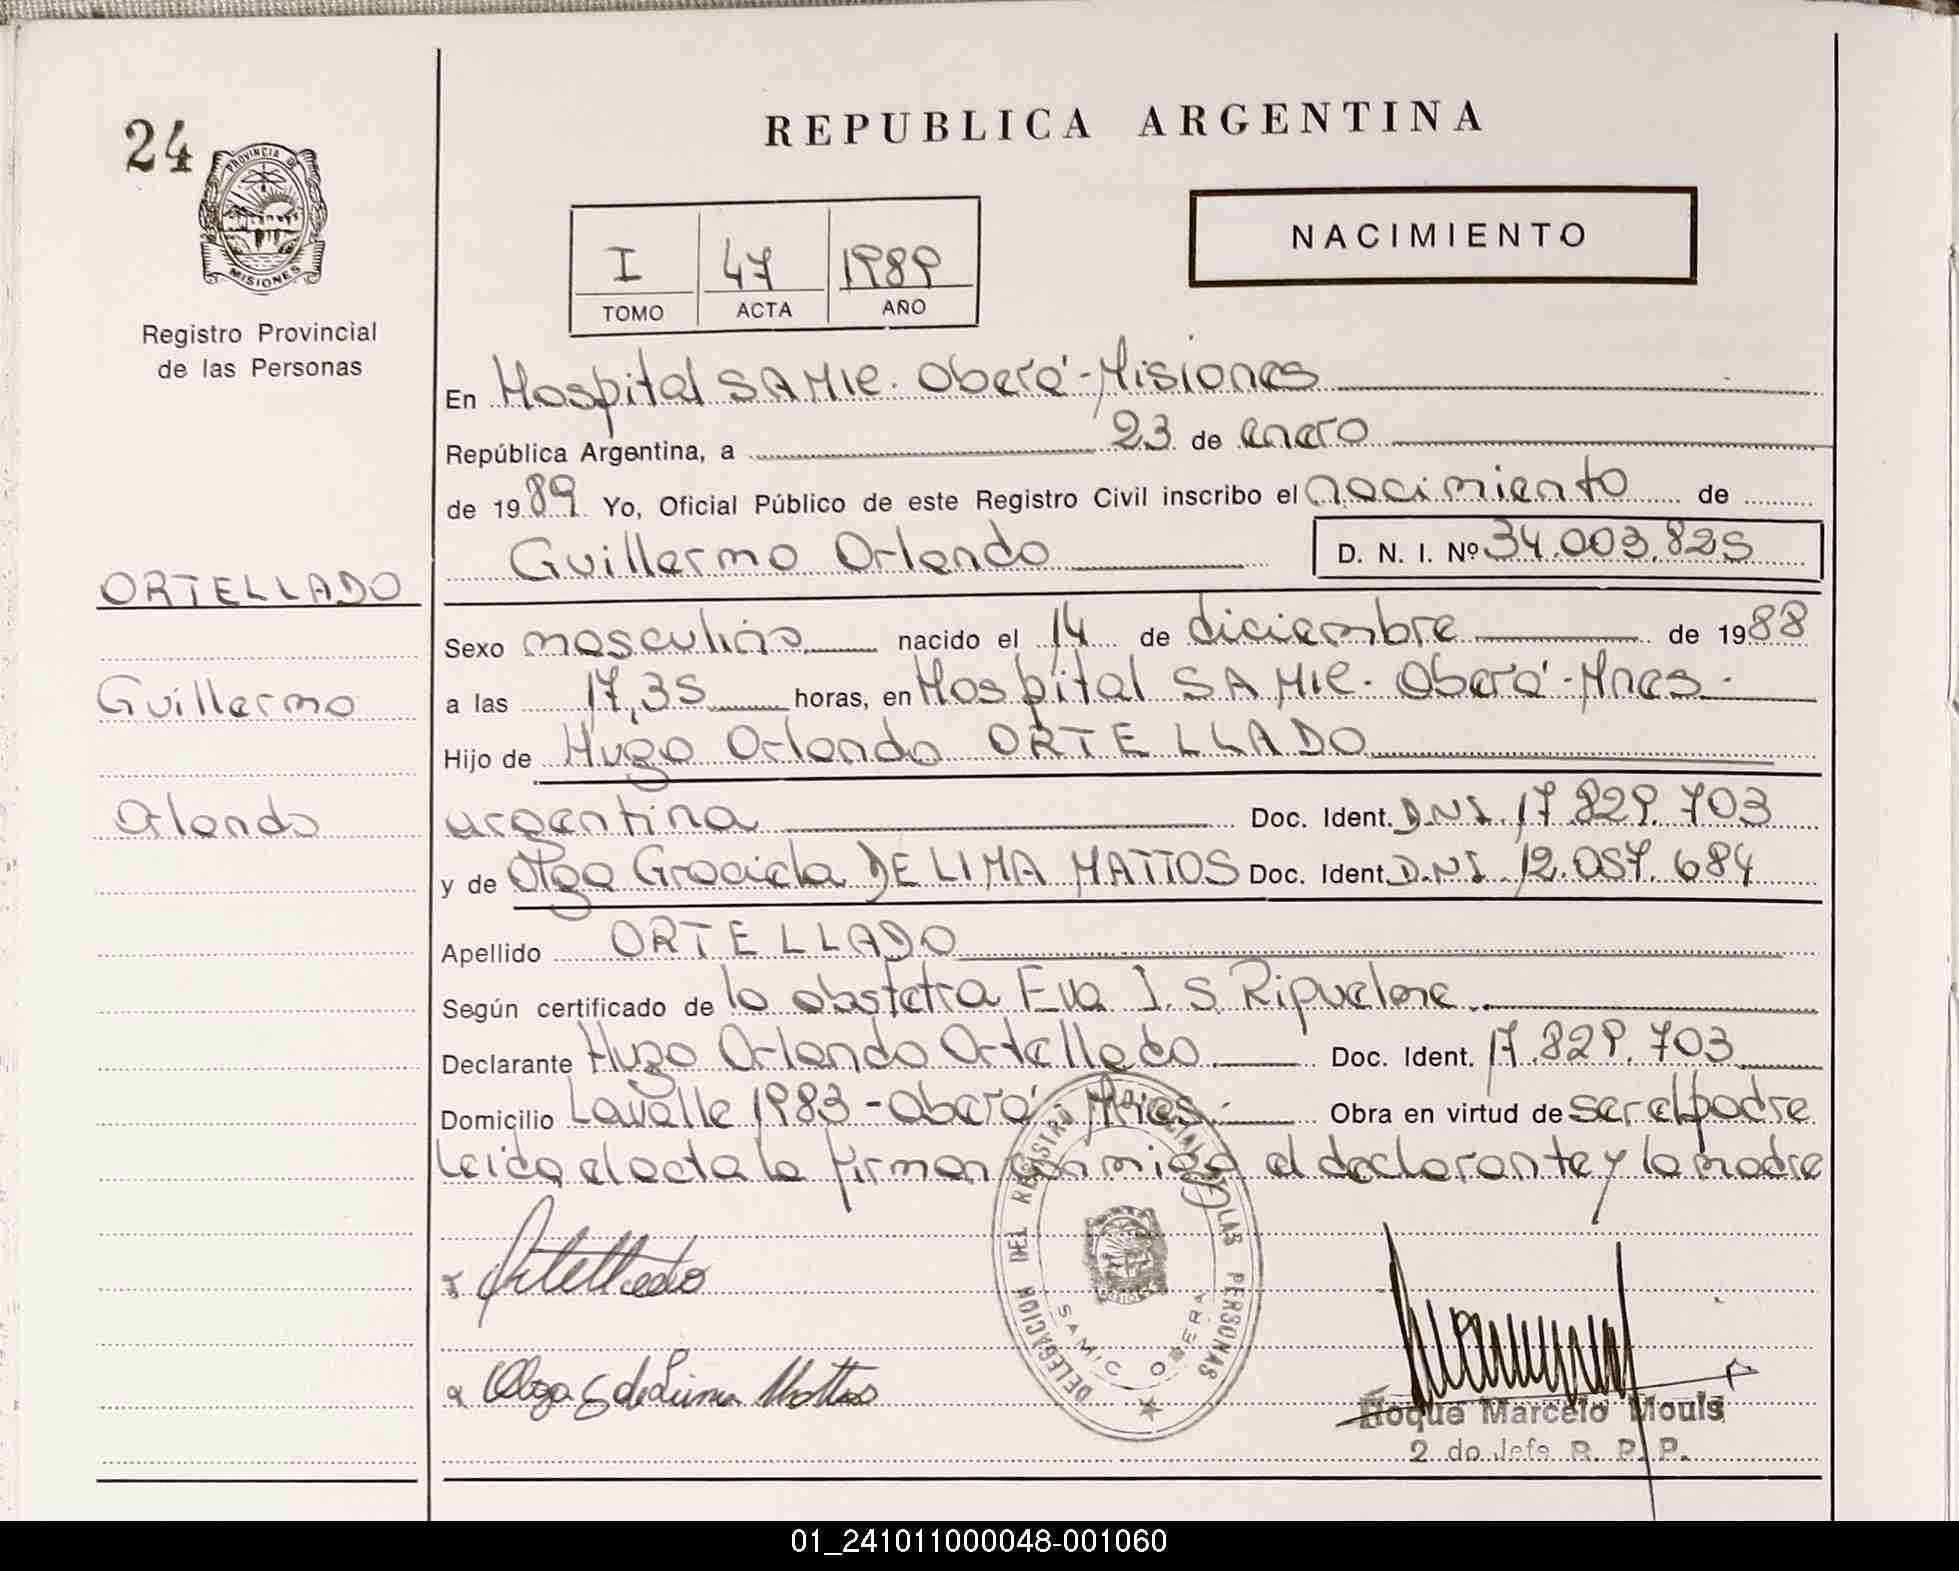 REPUBLICA ARGENTINA
24
PROVINCIA DE
MISIONES
Registro Provincial
de las Personas
I 47 1989
TOMO ACTA AÑO
NACIMIENTO
En Hospital SAMIC. Oberá - Misiones
República Argentina, a 23 de enero
de 1989 Yo, Oficial Público de este Registro Civil inscribo el nacimiento de
Guillermo Orlando D. N. I. Nº 34.003.825
ORTELLADO
Guillermo
Orlando
Sexo masculino nacido el 14 de diciembre de 1988
a las 17,35 horas, en Hospital SAMIC. Oberá - Mnes.
Hijo de Hugo Orlando ORTELLADO
argentina Doc. Ident. DNI. 17.829.703
y de Olga Graciela DE LIMA MATTOS Doc. Ident. DNI. 12.057.684
Apellido ORTELLADO
Según certificado de la obstetra Eva I. S. Riquelme
Declarante Hugo Orlando Ortellado Doc. Ident. 17.829.703
Domicilio Lavalle 1983 - Oberá - Mnes. Obra en virtud de ser el padre
Leida el acta la firman conmigo el declarante y la madre
Ortellado
Olga G de Lima Mattos
DELEGACION DEL REGISTRO PROVINCIAL DE LAS PERSONAS
SAMIC OBERA
Roque Marcelo Mouls
2 do Jefe R. P. P.
01_241011000048-001060